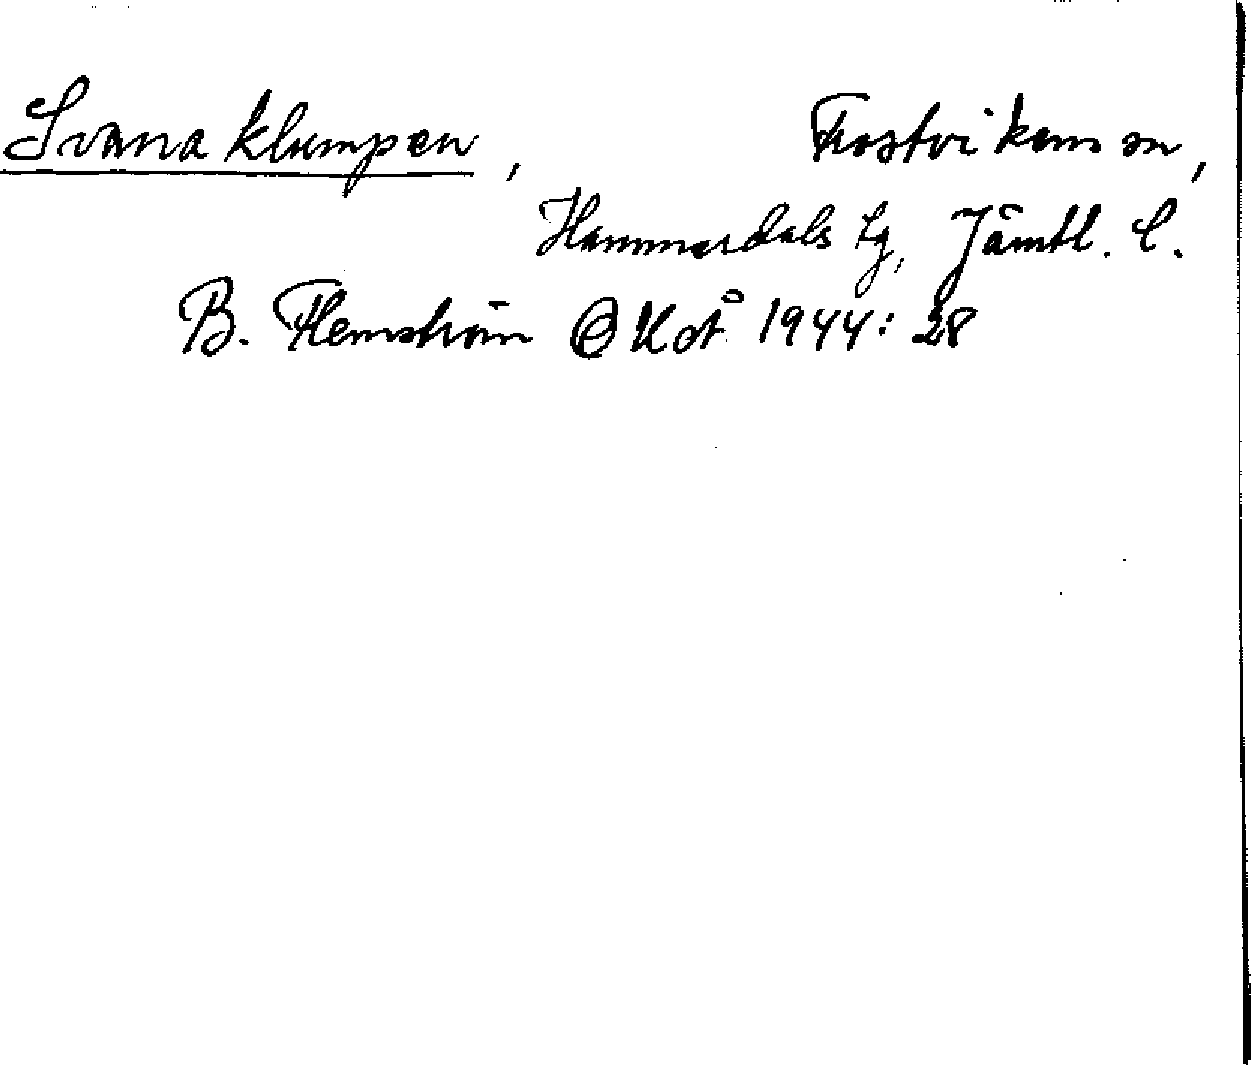 Svanaklumpen, Frostvikens sn,
Hammerdals tg, Jämtl. l.
B. Flemström OKot 1944: 28